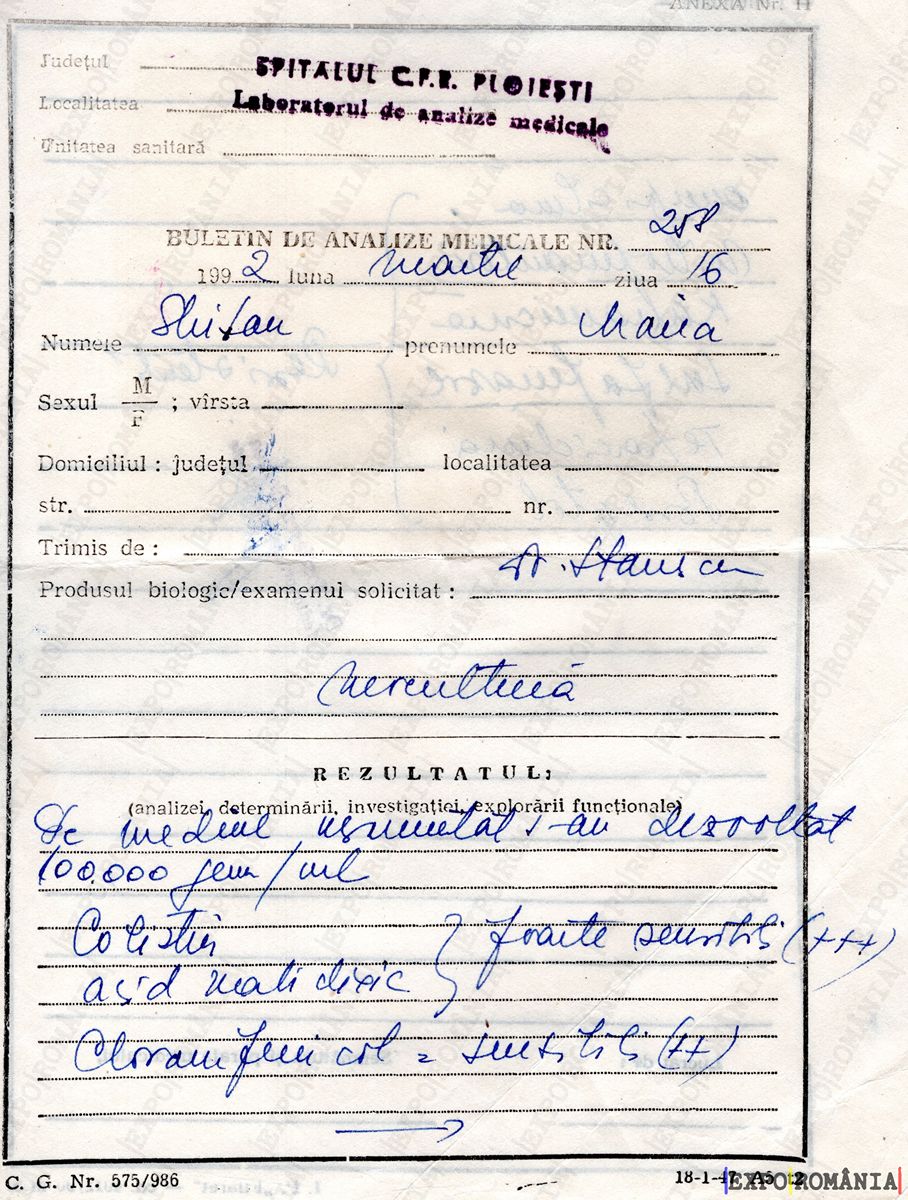 ANEXA Nr. 11
Județul
SPITALUL C.F.R. PLOIEȘTI
Localitatea
Laboratorul de analize medicale
Unitatea sanitară
BULETIN DE ANALIZE MEDICALE NR. 258
1992 luna martie ziua 16
Numele Shitan prenumele Maria
Sexul M/F ; vîrsta
Domiciliul : județul localitatea
str. nr.
Trimis de :
dr. Stanescu
Produsul biologic/examenul solicitat :
Urocultură
REZULTATUL:
(analizei, determinării, investigației, explorării funcționale)
Pe mediul însămînțat s-au dezvoltat
100.000 germ/ml
Colistin
acid nalidixic } foarte sensibili (+++)
Cloramfenicol = sensibili (++)
→
C. G. Nr. 575/986
18-1-47 A5 t2
EXPOROMÂNIA